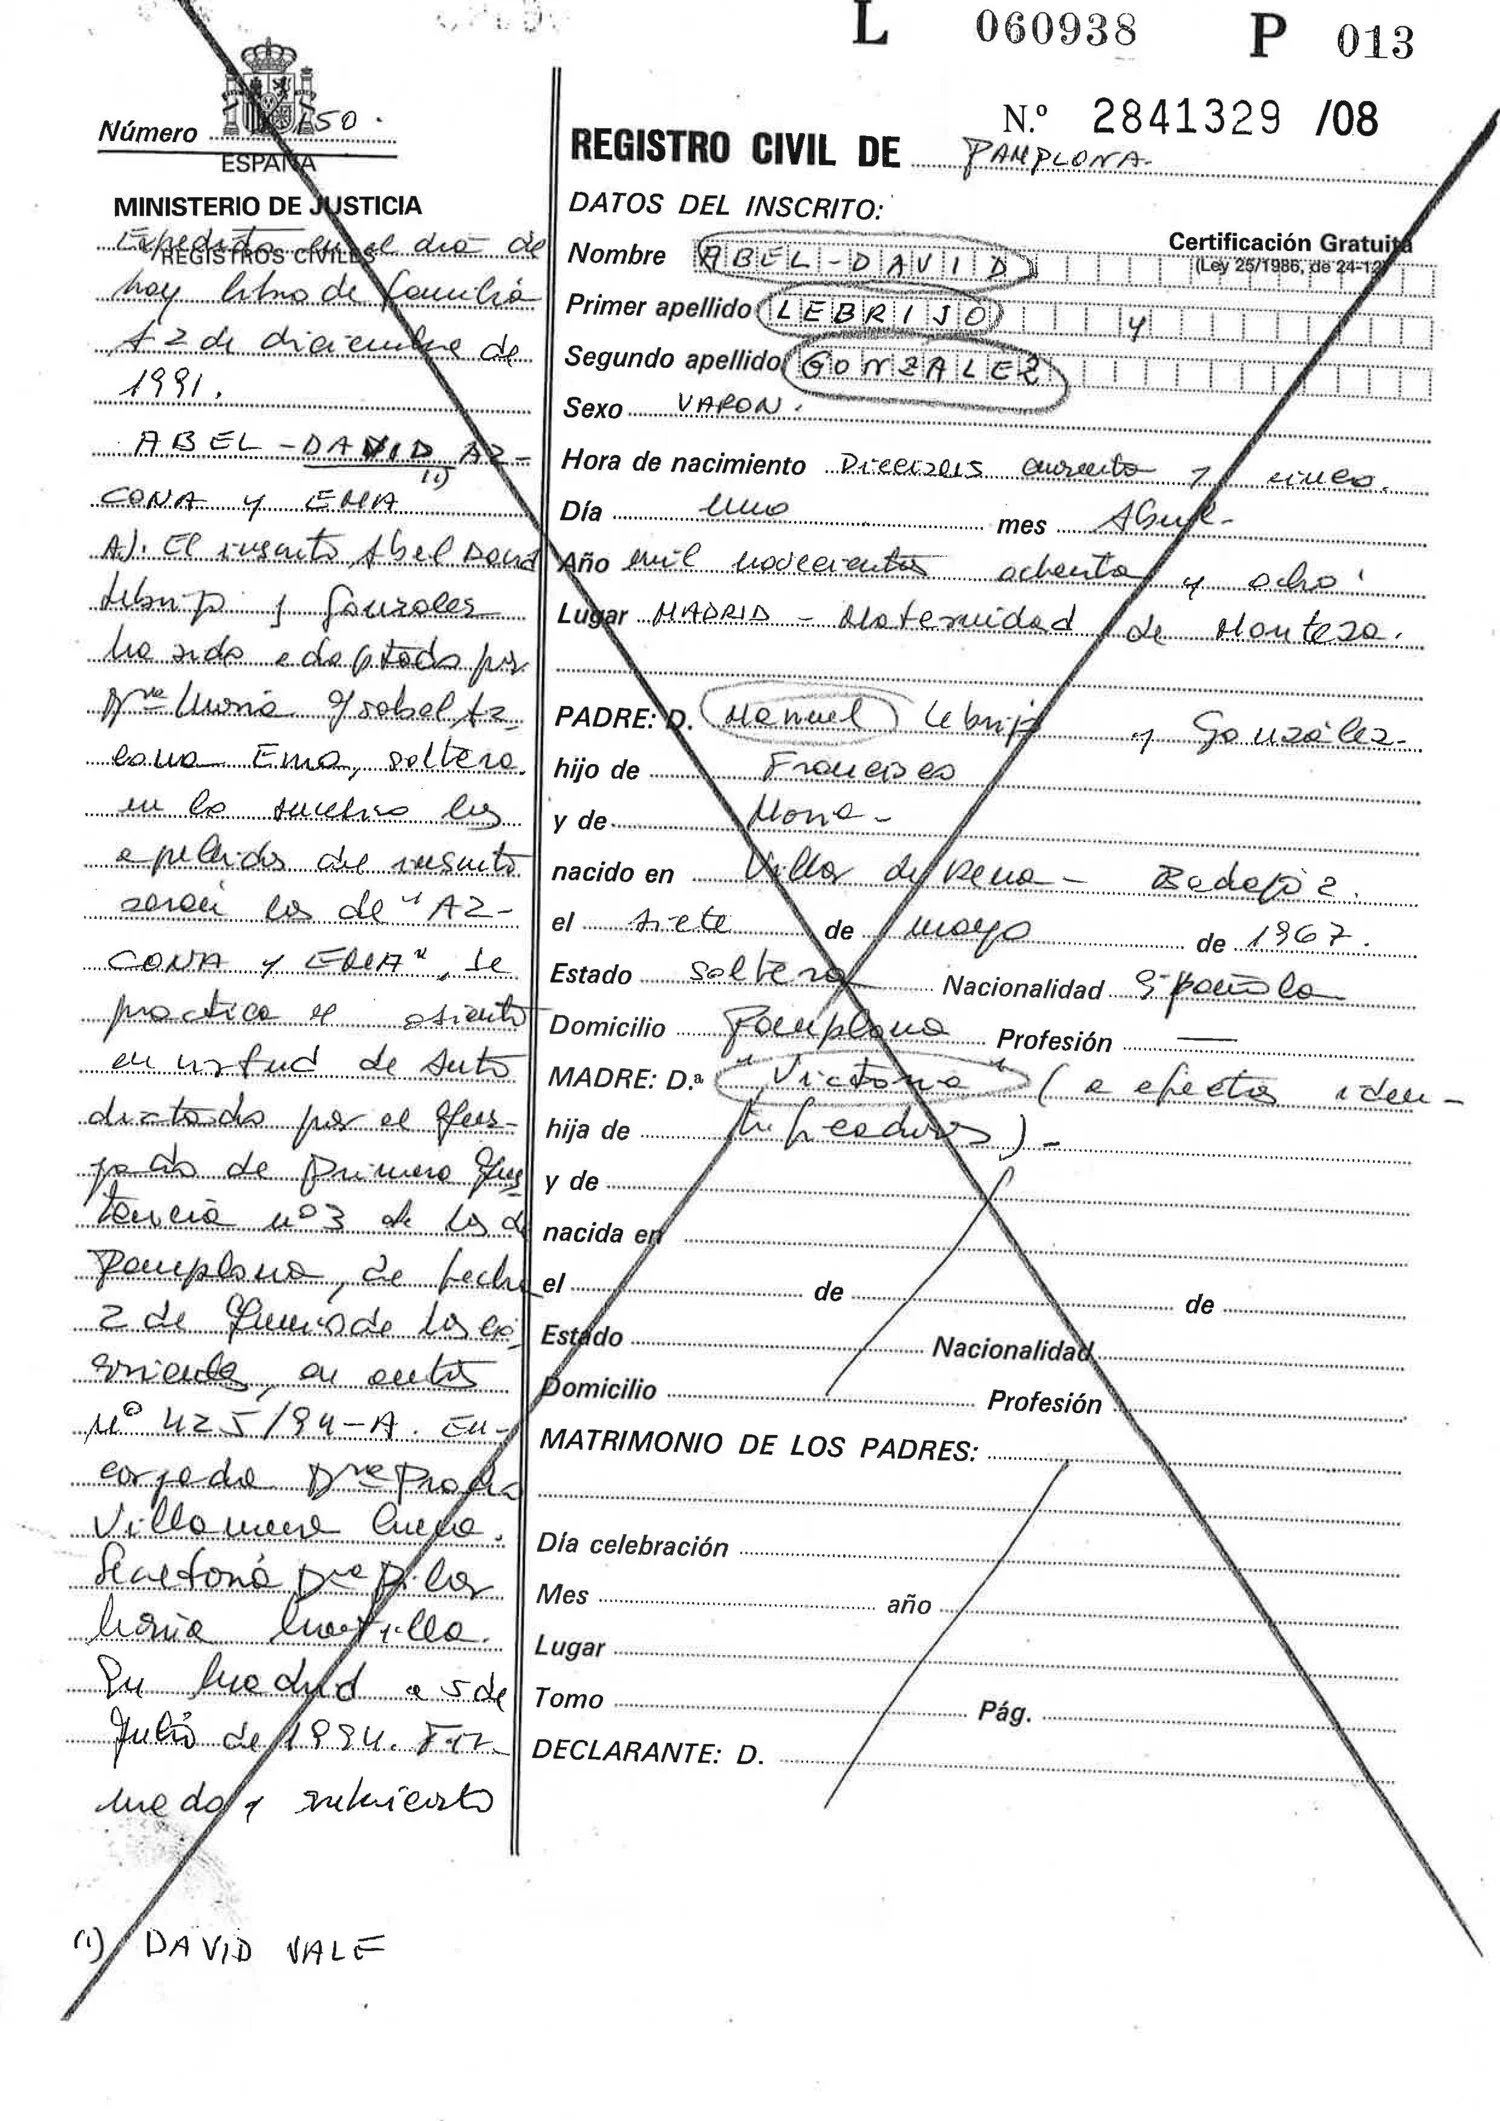 L 060938 P 013
N.º 2841329 /08
Número 150.
ESPAÑA
MINISTERIO DE JUSTICIA
REGISTROS CIVILES
Expedido en el día de
hoy libro de familia
12 de diciembre de
1991.
ABEL-DAVID AZ-
(1)
CONA y EMA
A). El inscrito, Abel David
Lebrijo y González
ha sido adoptado por
Dña María Ysabel Az-
cona Ema, soltera.
en lo sucesivo los
apellidos del inscrito
serán los de "AZ-
CONA y EMA", se
practica el asiento
en virtud de Auto
dictado por el Juz-
gado de Primera Ins-
tancia nº 3 de los de
Pamplona, de fecha
2 de Junio de los co-
rrientes, en autos
Nº 425/94-A. En-
cargada Dña
Villamera
Secretaria Dña Pilar
María
En Madrid a 5 de
Julio de 1994. Fir-
mado y
(1) DAVID VALE
REGISTRO CIVIL DE PAMPLONA.
DATOS DEL INSCRITO:
Certificación Gratuita
(Ley 25/1986, de 24-12)
Nombre ABEL-DAVID
Primer apellido LEBRIJO y
Segundo apellido GONZALEZ
Sexo VARON.
Hora de nacimiento Dieciseis cuarenta y cinco.
Día uno mes Abril-
Año mil novecientos ochenta y ocho.
Lugar MADRID - Maternidad de Montesa.
PADRE: D. Manuel Lebrijo y González-
hijo de Francisco
y de María-
nacido en Villar de Rena - Badajoz.
el siete de mayo de 1967.
Estado soltero Nacionalidad Española
Domicilio Pamplona Profesión —
MADRE: D.ª "Victoria" (a efectos iden-
hija de tificadores)-
y de
nacida en
el de de
Estado Nacionalidad
Domicilio Profesión
MATRIMONIO DE LOS PADRES:
Día celebración
Mes año
Lugar
Tomo Pág.
DECLARANTE: D.